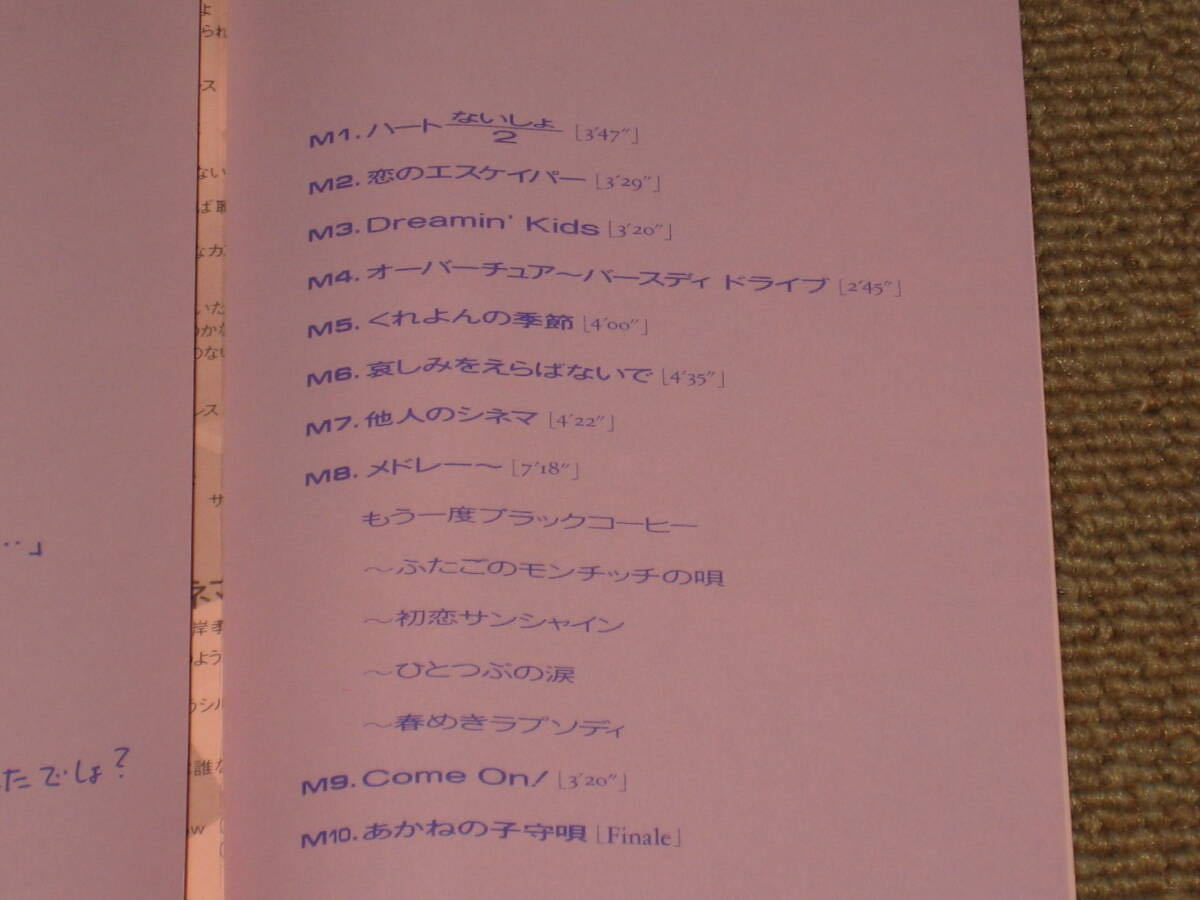 よ
られ
ス
ない
ば
なカ
いた
のかな
のない
レス
サ
…」
ネマ
岸孝
のよう
うシル
たでしょ?
誰な
ow
M1. ハート ないしょ/2 [3'47"]
M2. 恋のエスケイパー [3'29"]
M3. Dreamin' Kids [3'20"]
M4. オーバーチュア〜バースディ ドライブ [2'45"]
M5. くれよんの季節 [4'00"]
M6. 哀しみをえらばないで [4'35"]
M7. 他人のシネマ [4'22"]
M8. メドレー〜 [7'18"]
もう一度ブラックコーヒー
〜ふたごのモンチッチの唄
〜初恋サンシャイン
〜ひとつぶの涙
〜春めきラプソディ
M9. Come On! [3'20"]
M10. あかねの子守唄 [Finale]